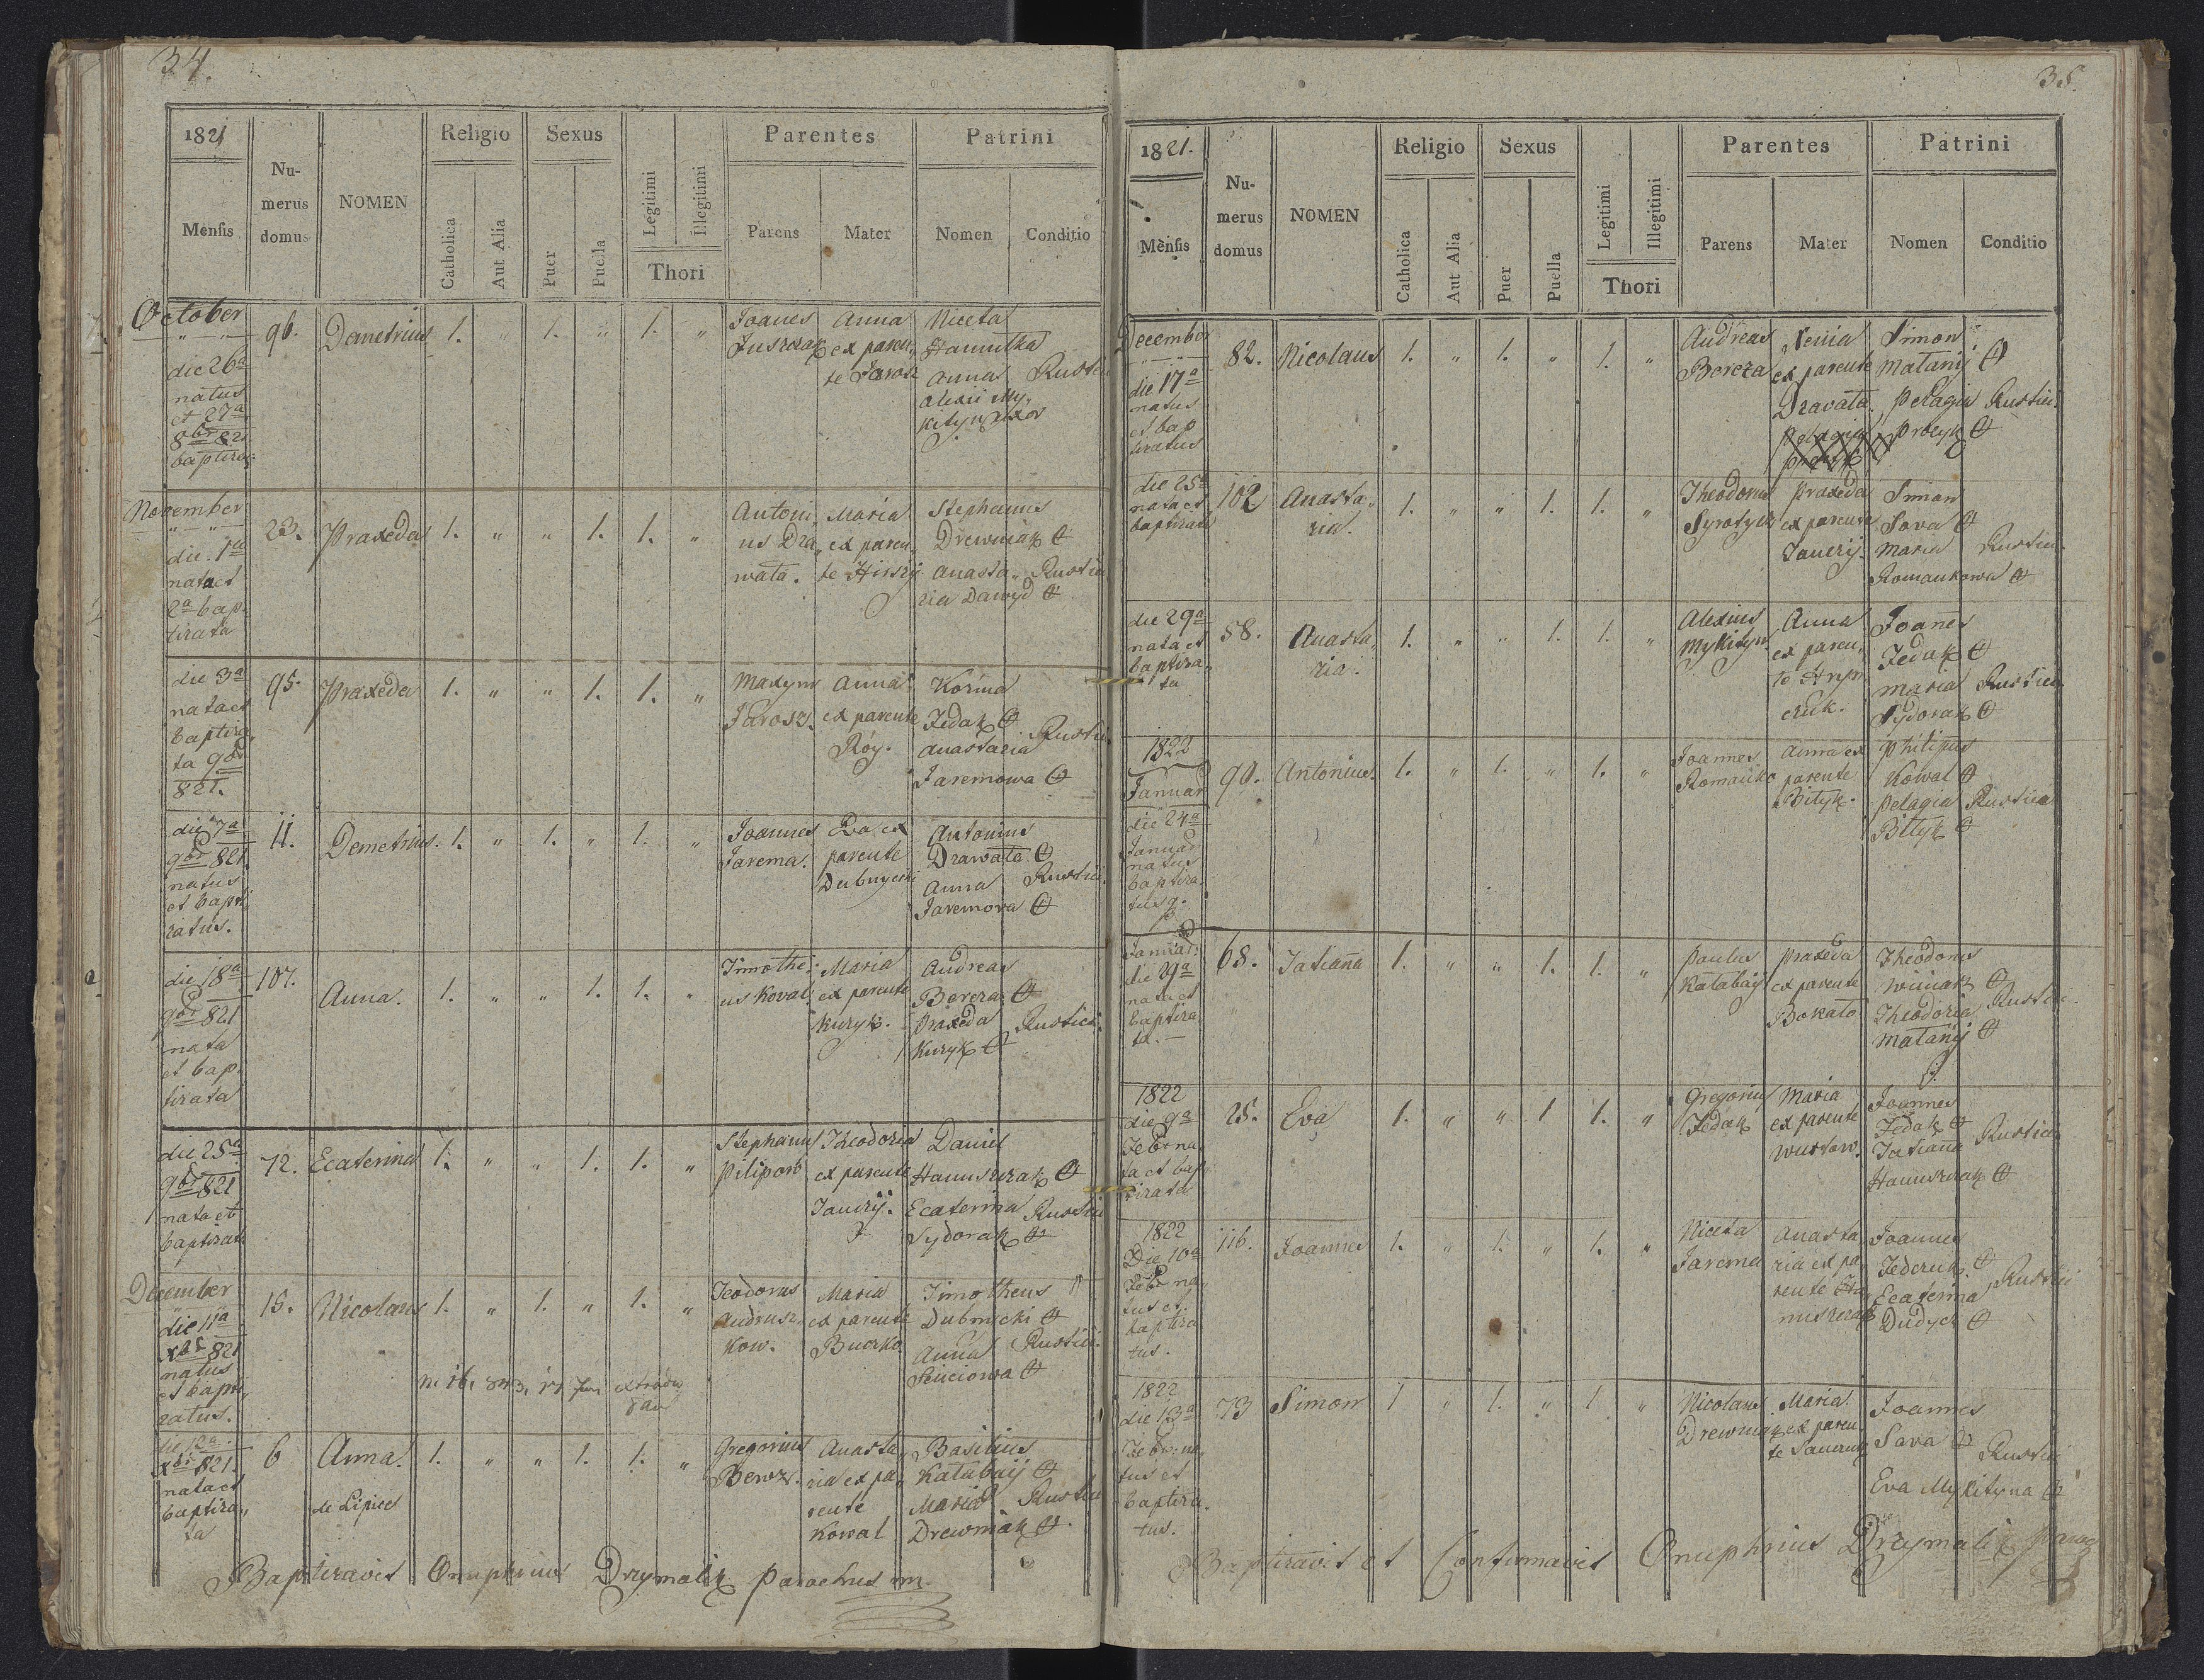 34.
1821
Mensis
Nu-
merus
domus
NOMEN
Religio
Catholica
Aut Alia
Sexus
Puer
Puella
Legitimi
Illegitimi
Thori
Parentes
Parens
Mater
Patrini
Nomen
Conditio
October
" — " —
die 26a
natus
et 27a
8br 821
baptizat:
96.
Demetrius
1. " 1. " 1. "
Joanes
Juszczak
Anna
ex paren„
te Jarosz
Niceta
Hanutka
Anna
Alexii My„
kityn uxor
Rustici
November
" — " —
die 1a
nata et
2a bap„
tizata
23.
Praxeda
1. " " 1. 1. "
Antoni„
us Dra„
wata.
Maria
ex paren„
te Hirszy
Stephanus
Drewniak
Anasta„
zia Dawyd
Rustici
die 3a
nata et
baptiza„
ta 9br
821.
95.
Praxeda
1. " " 1. 1. "
Maxym
Jarosz.
Anna
ex parente
Róy.
Korma
Fedak
Anastazia
Jaremowa
Rustici
die 7a
9br 821
natus
et bapti„
zatus.
11.
Demetrius.
1. " 1. " 1. "
Joannes
Jarema.
Eva ex
parente
Dubnycki
Antonius
Drawata
Anna
Jaremova
Rustici.
die 18a
9br 821
nata
et bap„
tizata
107.
Anna.
1. " " 1. 1. "
Timothe„
us Koval.
Maria
ex parente
Kuryk.
Andreas
Bereza
Praxeda
Kuryk
Rustici.
die 25a
9br 821
nata et
baptizata
72.
Ecaterina
1. " " 1. 1. "
Stephanus
Pilipow
Theodora
ex parente
Jaueryj.
Daniel
Hanuszczak
Ecaterina
Sydorak
Rustici
December
die 11a
Xbr 821
natus
et bapti„
zatus.
15.
Nicolaus
1. " 1. " 1. "
Teodorus
Andrusz„
kow.
Maria
ex parente
Buczko
Timotheus
Dubnycki
Anna
Senciowa
Rustici
die 12a
Xbr 821.
nata et
baptiza„
ta
6
Anna.
de Lipice
1. " " 1. 1. "
Gregorius
Berez.
Anasta„
zia ex pa„
rente
Kowal
Basilius
Katabaij
Maria
Drewniak
Rustici
Baptizavit Onuphrius Drzymalik Parochus mp.
35.
1821.
Mensis
Nu-
merus
domus
NOMEN
Religio
Catholica
Aut Alia
Sexus
Puer
Puella
Legitimi
Illegitimi
Thori
Parentes
Parens
Mater
Patrini
Nomen
Conditio
December
" — " —
die 17a
natus
et bap
tizatus
82.
Nicolaus
1. " 1. " 1. "
Andreas
Bereza
Xenia
ex parente
Dravata.
Simon
Matanij
Pelagia
Procyk
Rustici.
die 25a
nata et
baptizata
102
Anasta„
zia.
1. " " 1. 1. "
Theodorus
Syrotyuk
Praxeda
ex parente
Jaueryj.
Simon
Sava
Maria
Romankowa
Rustici.
die 29a
nata et
baptiza„
ta
58.
Anasta„
zia.
1. " " 1. 1. "
Alexius
Mykityn.
Anna
ex paren„
te Hryn„
czuk.
Joañes
Fedak
Maria
Sydorak
Rustici
1822
Januar
die 24a
Januar
natus
baptiza„
tus q.
90.
Antonius.
1. " 1. " 1. "
Joannes
Romanko
Anna ex
parente
Bityk.
Philipus
Kowal
Pelagia
Bityk
Rustici
Januar:
die 29a
nata et
baptiza„
ta.—
68.
Tatiaña
1. " " 1. 1. "
Paulus
Katabay
Praxeda
ex parente
Bokalo
Theodorus
Winiarz
Theodozia
Matanij
Rustici.
1822
die 9a
Febr na
ta et bap
tizata
25.
Eva
1. " " 1 1. "
Gregorius
Fedak
Maria
ex parente
Wustow.
Joannes
Fedak
Tatiaña
Hanuszczak
Rustici
1822
Die 10a
Febr na„
tus et
baptiza
tus.
116.
Joannes
1. " 1. " 1. "
Niceta
Jarema
Anasta
zia ex pa„
rente Ha„
nuszczak
Joannes
Federuk
Ecaterina
Dudycz
Rustici
1822
die 13a
Febr. na
tus et
baptiza„
tus.
73
Simon
1 " 1. " 1. "
Nicolaus
Drewniak
Maria
ex paren
te
Joannes
Sava
Eva Mykityna
Rustici
Baptizavit et Confirmavit Onuphrius Drzymalik Paroch